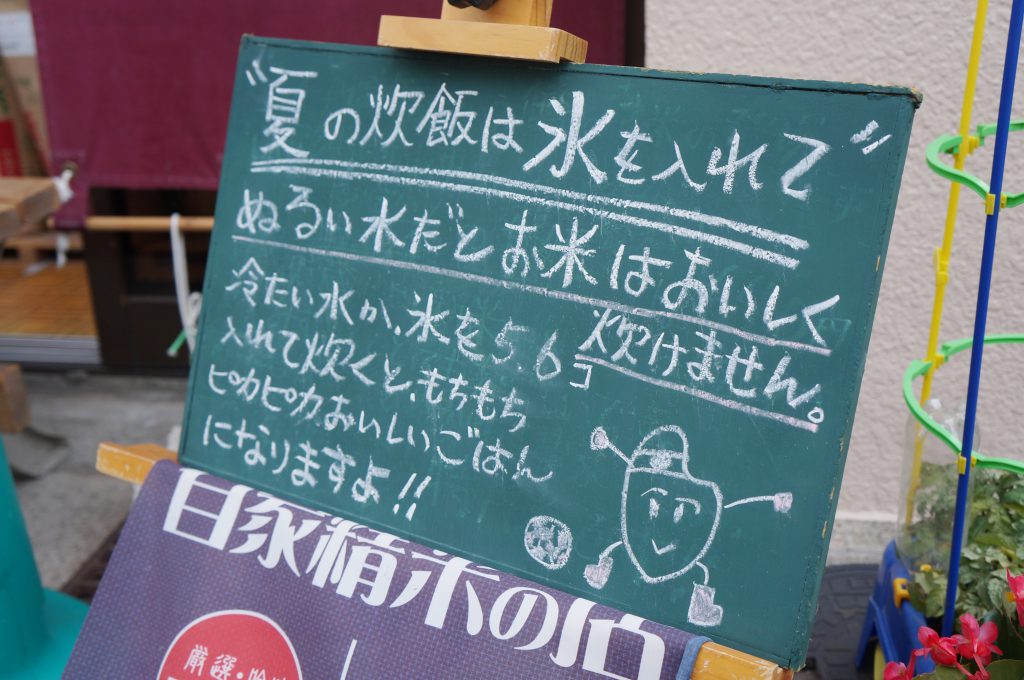 “夏の炊飯は氷を入れて”
ぬるい水だとお米はおいしく
炊けません。
冷たい水か、氷を5.6コ
入れて炊くと、もちもち
ピカピカおいしいごはん
になりますよ!!
自家精米の店
厳選・吟